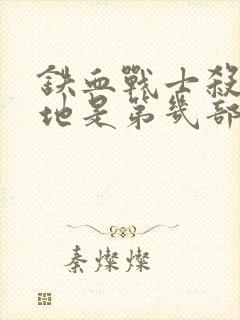 鉄血戰士殺
地是第幾部
秦燦燦